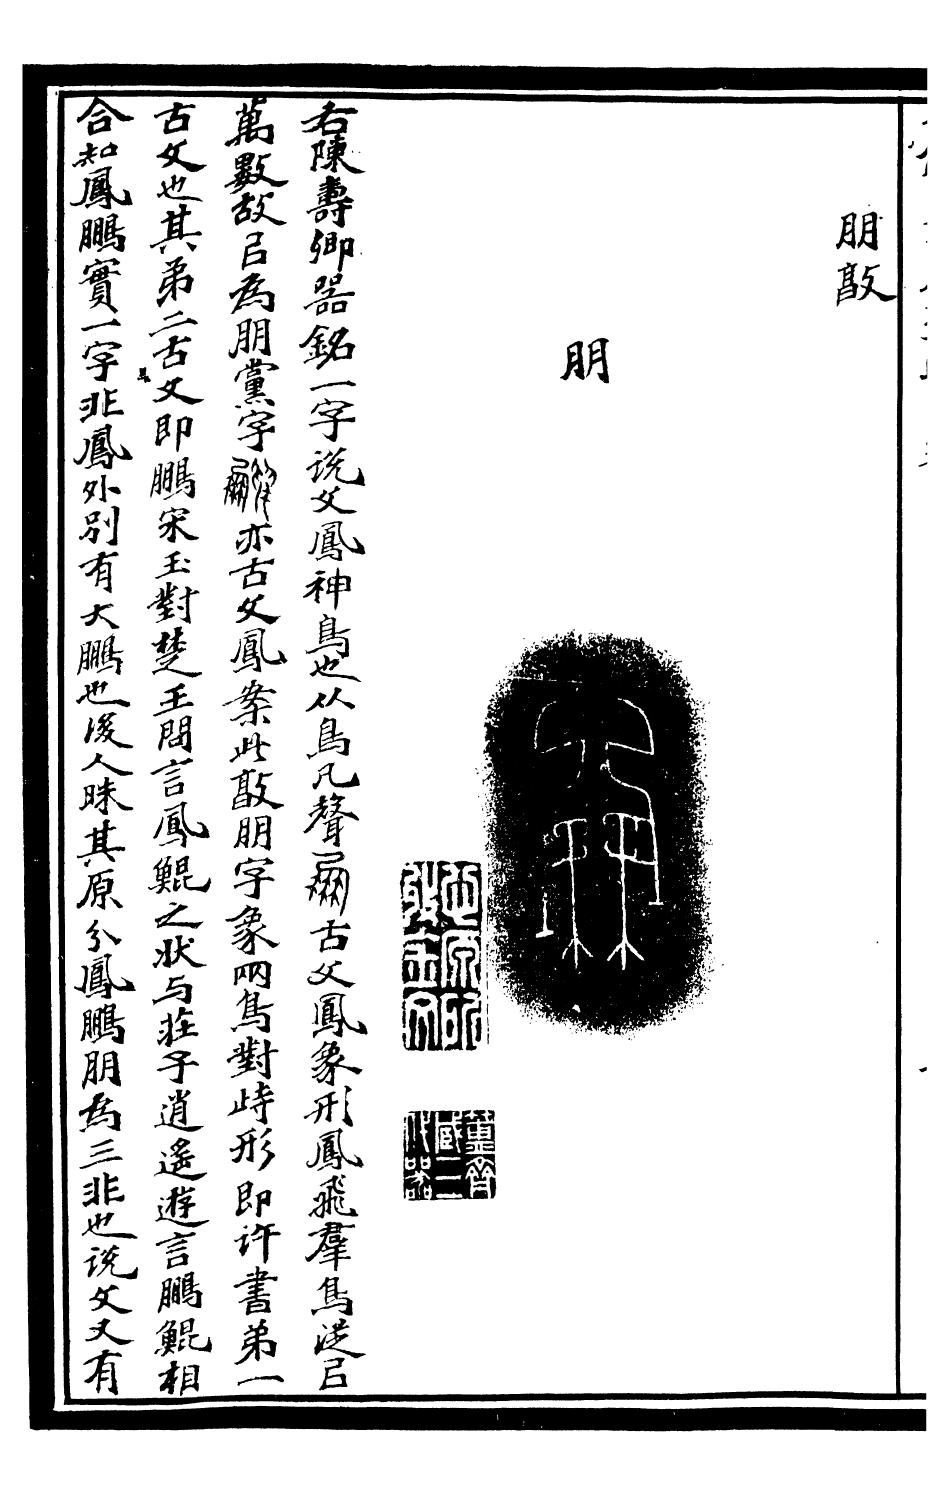 朋敦
朋
右陳壽卿器銘一字説文鳳神鳥也从鳥凡聲古文鳳象形鳳飛羣鳥從㠯
萬數故㠯為朋黨字亦古文鳳案此敦朋字象兩鳥對峙形即許書弟一
古文也其弟二古文即鵬宋玉對楚王問言鳳鯤之狀与莊子逍遙遊言鵬鯤相
合知鳳鵬實一字非鳳外別有大鵬也後人昧其原分鳳鵬朋為三非也説文又有